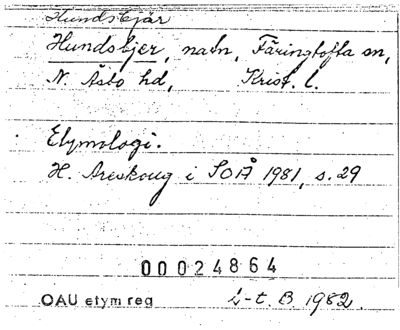 Hundsbjär
Hundsbjer, natn, Färingtofta sn,
N. Åsbo hd, Krist. l.
Etymologi.
H. Areskoug i SOÅ 1981, s. 29
00024864
OAU etym reg L-t. B. 1982.